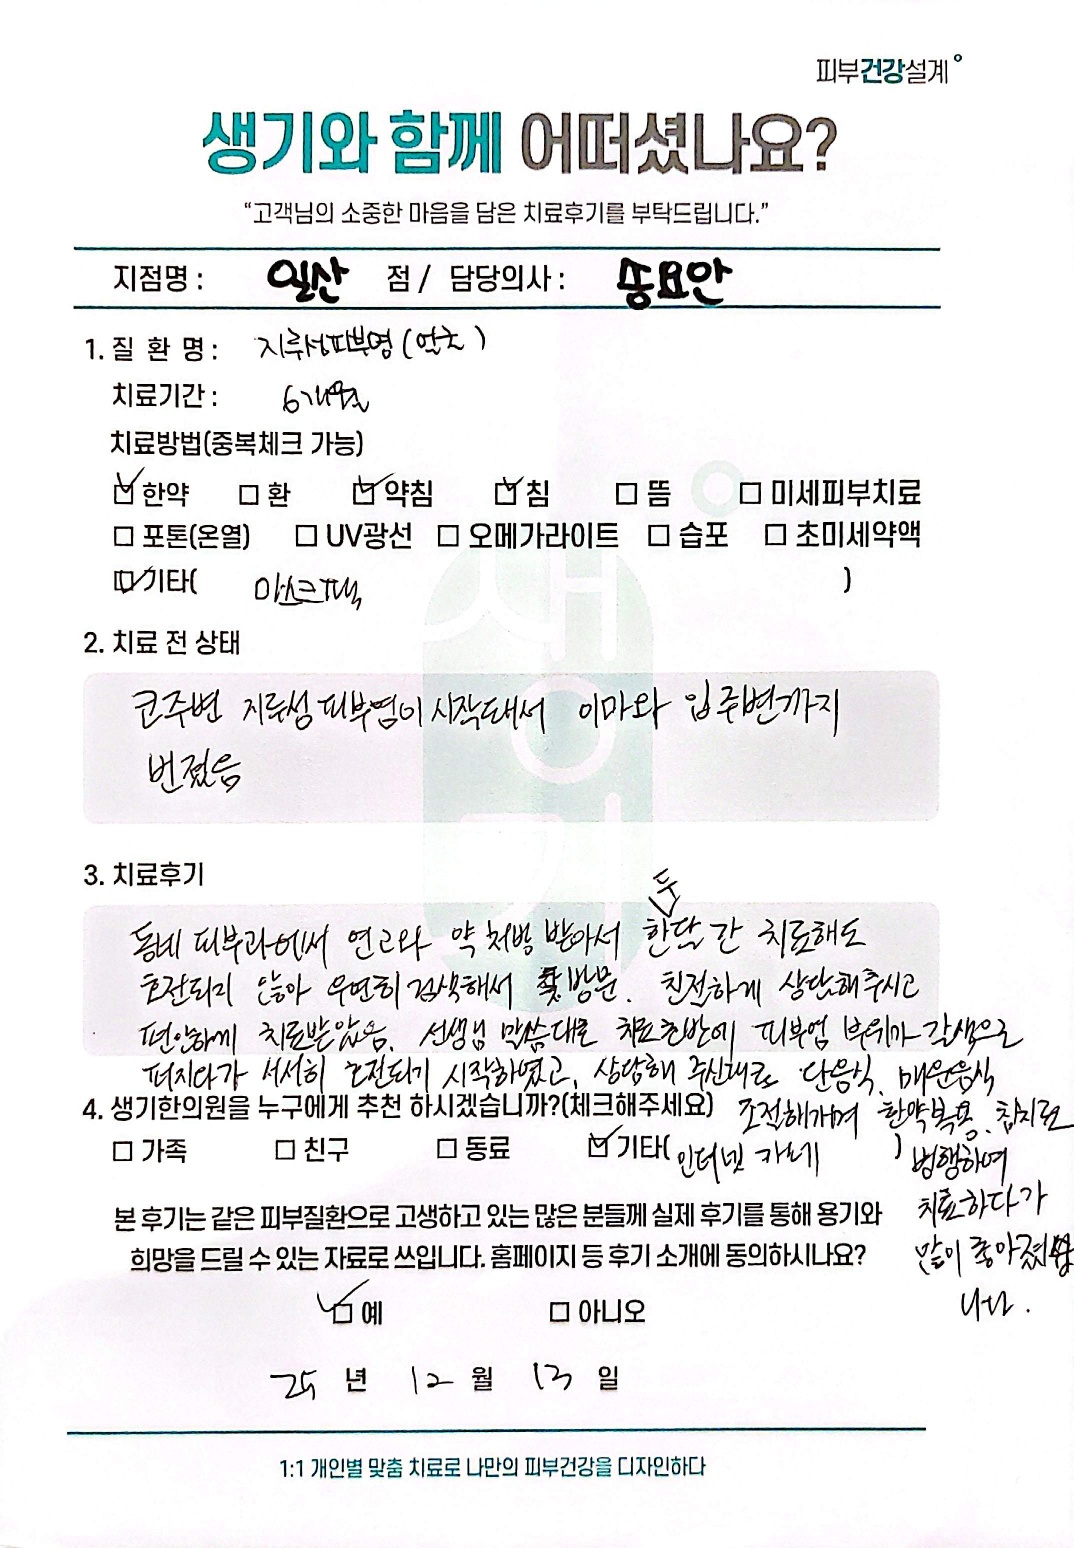 피부건강설계
생기와 함께 어떠셨나요?
“고객님의 소중한 마음을 담은 치료후기를 부탁드립니다.”
지점명 : 일산 점 / 담당의사 : 송요안
1. 질 환 명 : 지루성피부염 (안면)
치료기간 : 6개월
치료방법(중복체크 가능)
☑ 한약 □ 환 ☑ 약침 ☑ 침 □ 뜸 □ 미세피부치료
□ 포톤(온열) □ UV광선 □ 오메가라이트 □ 습포 □ 초미세약액
☑ 기타( 마스크팩 )
2. 치료 전 상태
코주변 지루성 피부염이 시작돼서 이마와 입주변까지
번졌음
3. 치료후기
두
동네 피부과에서 연고와 약 처방 받아서 한달 간 치료해도
호전되지 않아 우연히 검색해서 방문. 친절하게 상담해주시고
편안하게 치료받았음. 선생님 말씀대로 치료초반에 피부염 부위가 갈색으로
퍼지다가 서서히 호전되기 시작하였고, 상담해 주신대로 단음식, 매운음식
4. 생기한의원을 누구에게 추천 하시겠습니까?(체크해주세요) 조절해가며 한약복용, 침치료
□ 가족 □ 친구 □ 동료 ☑ 기타( 인터넷 카페 ) 병행하여
치료하다가
본 후기는 같은 피부질환으로 고생하고 있는 많은 분들께 실제 후기를 통해 용기와
희망을 드릴 수 있는 자료로 쓰입니다. 홈페이지 등 후기 소개에 동의하시나요?
많이 좋아졌습
니다.
☑ 예 □ 아니오
25 년 12 월 13 일
1:1 개인별 맞춤 치료로 나만의 피부건강을 디자인하다